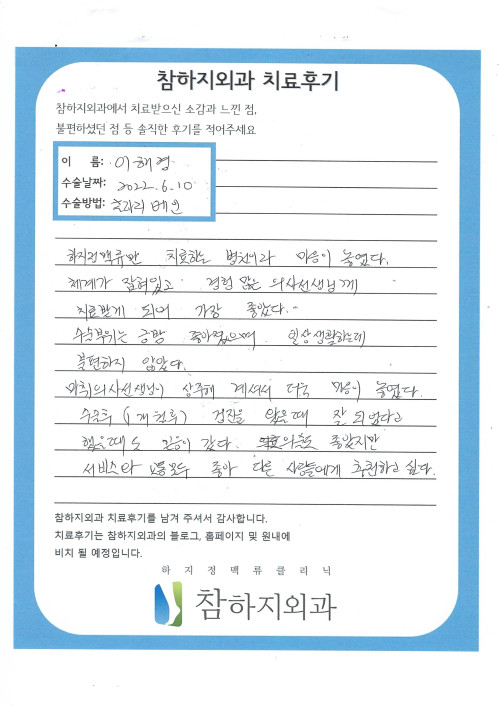 참하지외과 치료후기
참하지외과에서 치료받으신 소감과 느낀 점,
불편하셨던 점 등 솔직한 후기를 적어주세요
이 름: 이해경
수술날짜: 2022. 6. 10
수술방법: 클라리베인
하지정맥류만 치료하는 병원이라 마음이 놓였다.
체계가 잡혀있고 경험 많은 의사선생님께
치료받게 되어 가장 좋았다.
수술부위는 금방 좋아졌으며 일상생활하는데
불편하지 않았다.
마취의사선생님이 상주해 계셔서 더욱 마음이 놓였다.
수술후 (1개월후) 검진을 왔을때 잘 되었다고
했을때도 믿음이 갔다. 좋았지만
서비스와 모두 좋아 다른 사람들에게 추천하고 싶다.
참하지외과 치료후기를 남겨 주셔서 감사합니다.
치료후기는 참하지외과의 블로그, 홈페이지 및 원내에
비치 될 예정입니다.
하지정맥류클리닉
참하지외과